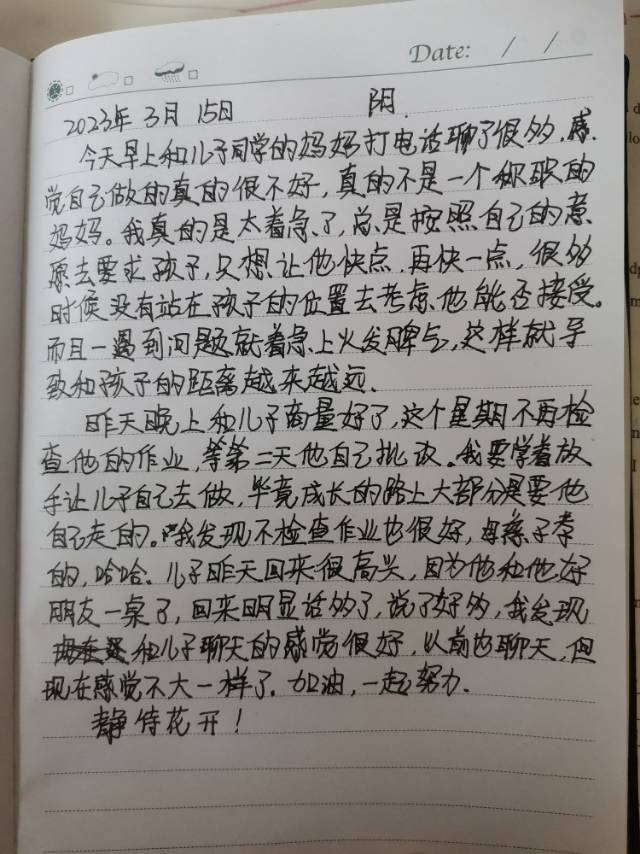 Date: / /
2023年 3月 15日 阴.
今天早上和儿子同学的妈妈打电话聊了很多,感
觉自己做的真的很不好,真的不是一个称职的
妈妈。我真的是太着急了,总是按照自己的意
愿去要求孩子,只想让他快点,再快一点,很多
时候没有站在孩子的位置去考虑他能否接受。
而且一遇到问题就着急上火发脾气,这样就导
致和孩子的距离越来越远.
昨天晚上和儿子商量好了,这个星期不再检
查他的作业,等第二天他自己批改。我要学着放
手让儿子自己去做,毕竟成长的路上大部分是要他
自己走的。我发现不检查作业也很好,母慈子孝
的,哈哈.儿子昨天回来很高兴,因为他和他好
朋友一桌了,回来明显话多了,说了好多,我发现
和儿子聊天的感觉很好,以前也聊天,但
现在感觉不大一样了.加油,一起努力.
静待花开!